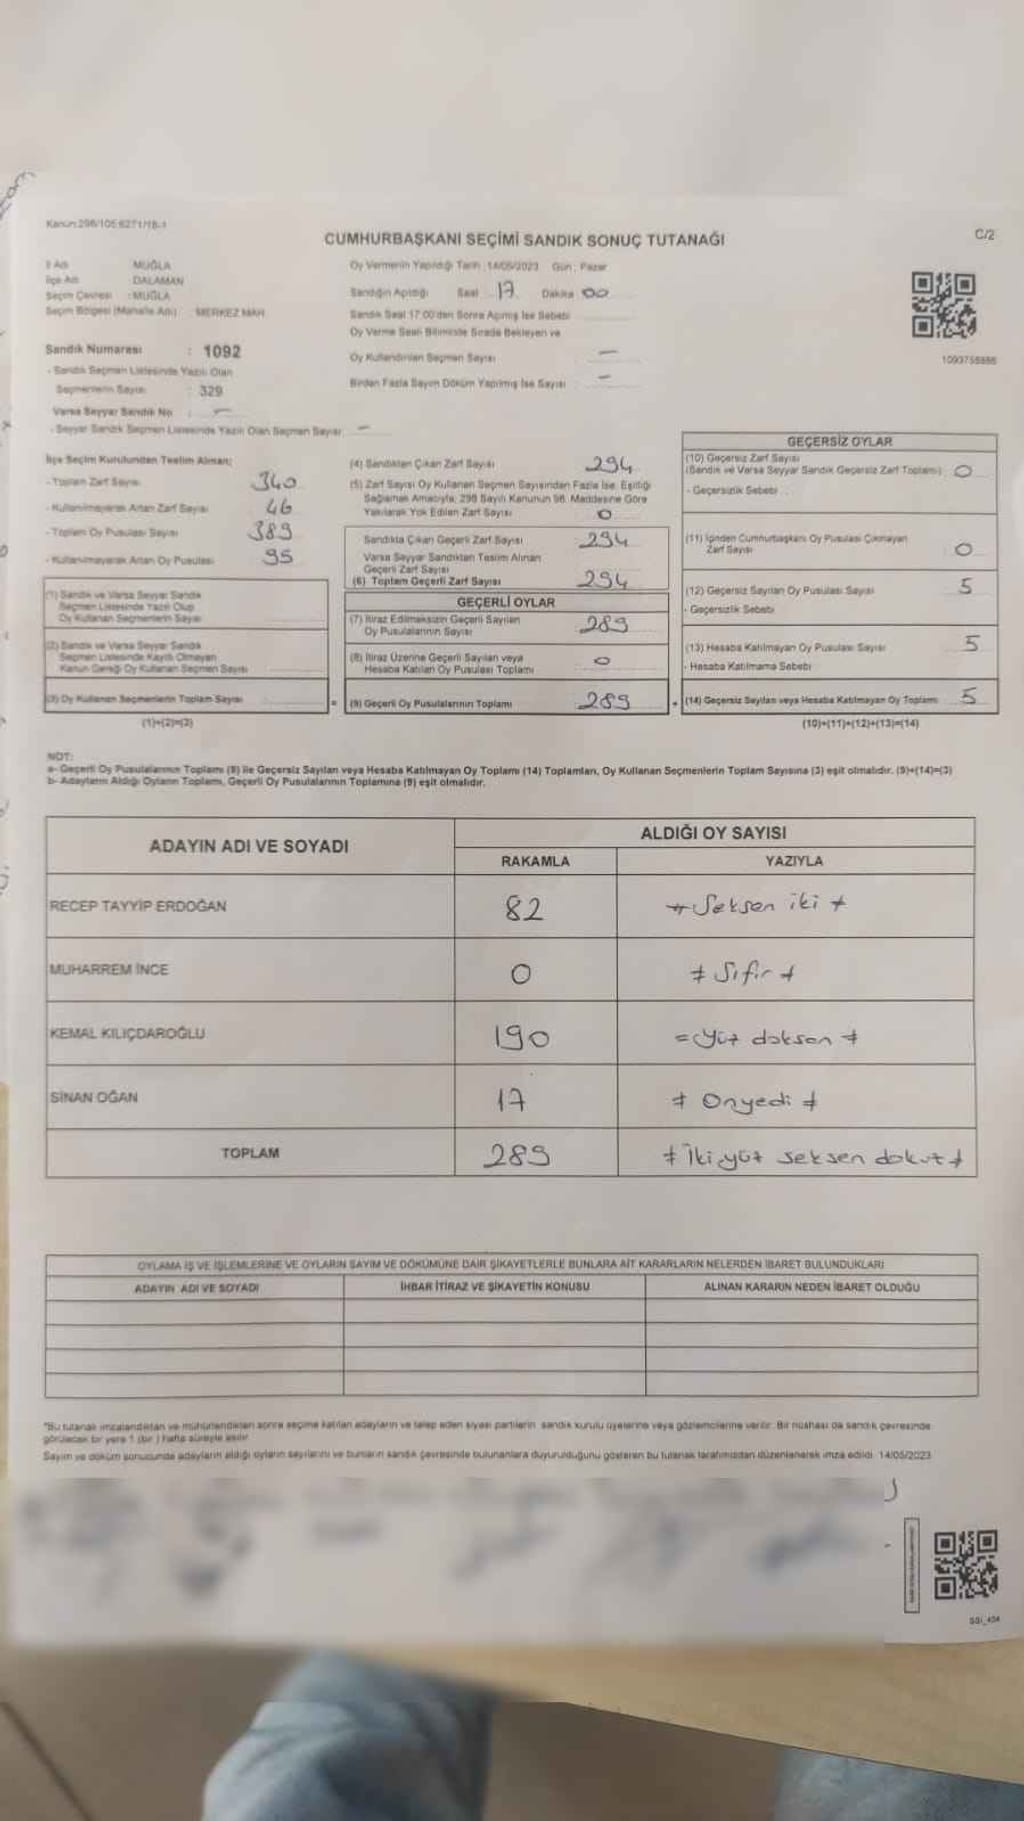 Kanun:298/105;6271/18-1
CUMHURBAŞKANI SEÇİMİ SANDIK SONUÇ TUTANAĞI
C/2
İl Adı : MUĞLA
İlçe Adı : DALAMAN
Seçim Çevresi : MUĞLA
Seçim Bölgesi (Mahalle Adı) : MERKEZ MAH.
Sandık Numarası : 1092
- Sandık Seçmen Listesinde Yazılı Olan
Seçmenlerin Sayısı : 329
Varsa Seyyar Sandık No : —
- Seyyar Sandık Seçmen Listesinde Yazılı Olan Seçmen Sayısı : —
Oy Vermenin Yapıldığı Tarih : 14/05/2023 Gün : Pazar
Sandığın Açıldığı Saat 17 Dakika 00
Sandık Saat 17:00'den Sonra Açılmış İse Sebebi
Oy Verme Saati Bitiminde Sırada Bekleyen ve
Oy Kullandırılan Seçmen Sayısı —
Birden Fazla Sayım Döküm Yapılmış İse Sayısı —
1093758886
İlçe Seçim Kurulundan Teslim Alınan;
- Toplam Zarf Sayısı 340
- Kullanılmayarak Artan Zarf Sayısı 46
- Toplam Oy Pusulası Sayısı 389
- Kullanılmayarak Artan Oy Pusulası 95
(1) Sandık ve Varsa Seyyar Sandık
Seçmen Listesinde Yazılı Olup
Oy Kullanan Seçmenlerin Sayısı
(2) Sandık ve Varsa Seyyar Sandık
Seçmen Listesinde Kayıtlı Olmayan
Kanun Gereği Oy Kullanan Seçmen Sayısı
(3) Oy Kullanan Seçmenlerin Toplam Sayısı
(1)+(2)=(3)
(4) Sandıktan Çıkan Zarf Sayısı 294
(5) Zarf Sayısı Oy Kullanan Seçmen Sayısından Fazla İse, Eşitliği
Sağlamak Amacıyla, 298 Sayılı Kanunun 98. Maddesine Göre
Yakılarak Yok Edilen Zarf Sayısı 0
Sandıkta Çıkan Geçerli Zarf Sayısı 294
Varsa Seyyar Sandıktan Teslim Alınan
Geçerli Zarf Sayısı
(6) Toplam Geçerli Zarf Sayısı 294
GEÇERLİ OYLAR
(7) İtiraz Edilmeksizin Geçerli Sayılan
Oy Pusulalarının Sayısı 289
(8) İtiraz Üzerine Geçerli Sayılan veya
Hesaba Katılan Oy Pusulası Toplamı 0
= (9) Geçerli Oy Pusulalarının Toplamı 289
GEÇERSİZ OYLAR
(10) Geçersiz Zarf Sayısı
(Sandık ve Varsa Seyyar Sandık Geçersiz Zarf Toplamı) 0
- Geçersizlik Sebebi
(11) İçinden Cumhurbaşkanı Oy Pusulası Çıkmayan
Zarf Sayısı 0
(12) Geçersiz Sayılan Oy Pusulası Sayısı 5
- Geçersizlik Sebebi
(13) Hesaba Katılmayan Oy Pusulası Sayısı 5
- Hesaba Katılmama Sebebi
+ (14) Geçersiz Sayılan veya Hesaba Katılmayan Oy Toplamı 5
(10)+(11)+(12)+(13)=(14)
NOT:
a- Geçerli Oy Pusulalarının Toplamı (9) ile Geçersiz Sayılan veya Hesaba Katılmayan Oy Toplamı (14) Toplamları, Oy Kullanan Seçmenlerin Toplam Sayısına (3) eşit olmalıdır. (9)+(14)=(3)
b- Adayların Aldığı Oyların Toplamı, Geçerli Oy Pusulalarının Toplamına (9) eşit olmalıdır.
ADAYIN ADI VE SOYADI ALDIĞI OY SAYISI
RAKAMLA YAZIYLA
RECEP TAYYİP ERDOĞAN 82 # Seksen iki #
MUHARREM İNCE 0 # Sıfır #
KEMAL KILIÇDAROĞLU 190 = Yüz doksan #
SİNAN OĞAN 17 # Onyedi #
TOPLAM 289 # İkiyüz seksen dokuz #
OYLAMA İŞ VE İŞLEMLERİNE VE OYLARIN SAYIM VE DÖKÜMÜNE DAİR ŞİKAYETLERLE BUNLARA AİT KARARLARIN NELERDEN İBARET BULUNDUKLARI
ADAYIN ADI VE SOYADI İHBAR İTİRAZ VE ŞİKAYETİN KONUSU ALINAN KARARIN NEDEN İBARET OLDUĞU
"Bu tutanak imzalandıktan ve mühürlendikten sonra seçime katılan adayların ve talep eden siyasi partilerin sandık kurulu üyelerine veya gözlemcilerine verilir. Bir nüshası da sandık çevresinde
görülecek bir yere 1 (bir) hafta süreyle asılır.
Sayım ve döküm sonucunda adayların aldığı oyların sayılarını ve bunların sandık çevresinde bulunanlara duyurulduğunu gösteren bu tutanak tarafımızdan düzenlenerek imza edildi. 14/05/2023